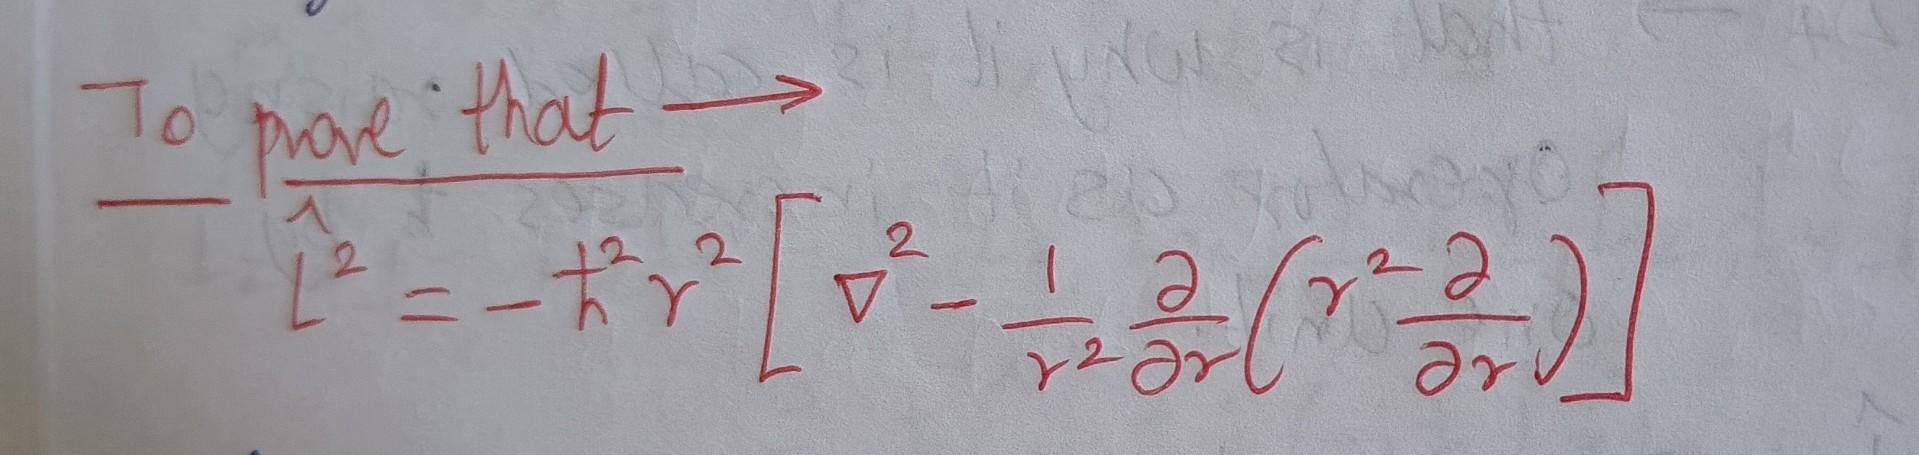 To prove that →
L̂² = -ħ²r² [ ∇² - 1/r² ∂/∂r ( r² ∂/∂r ) ]